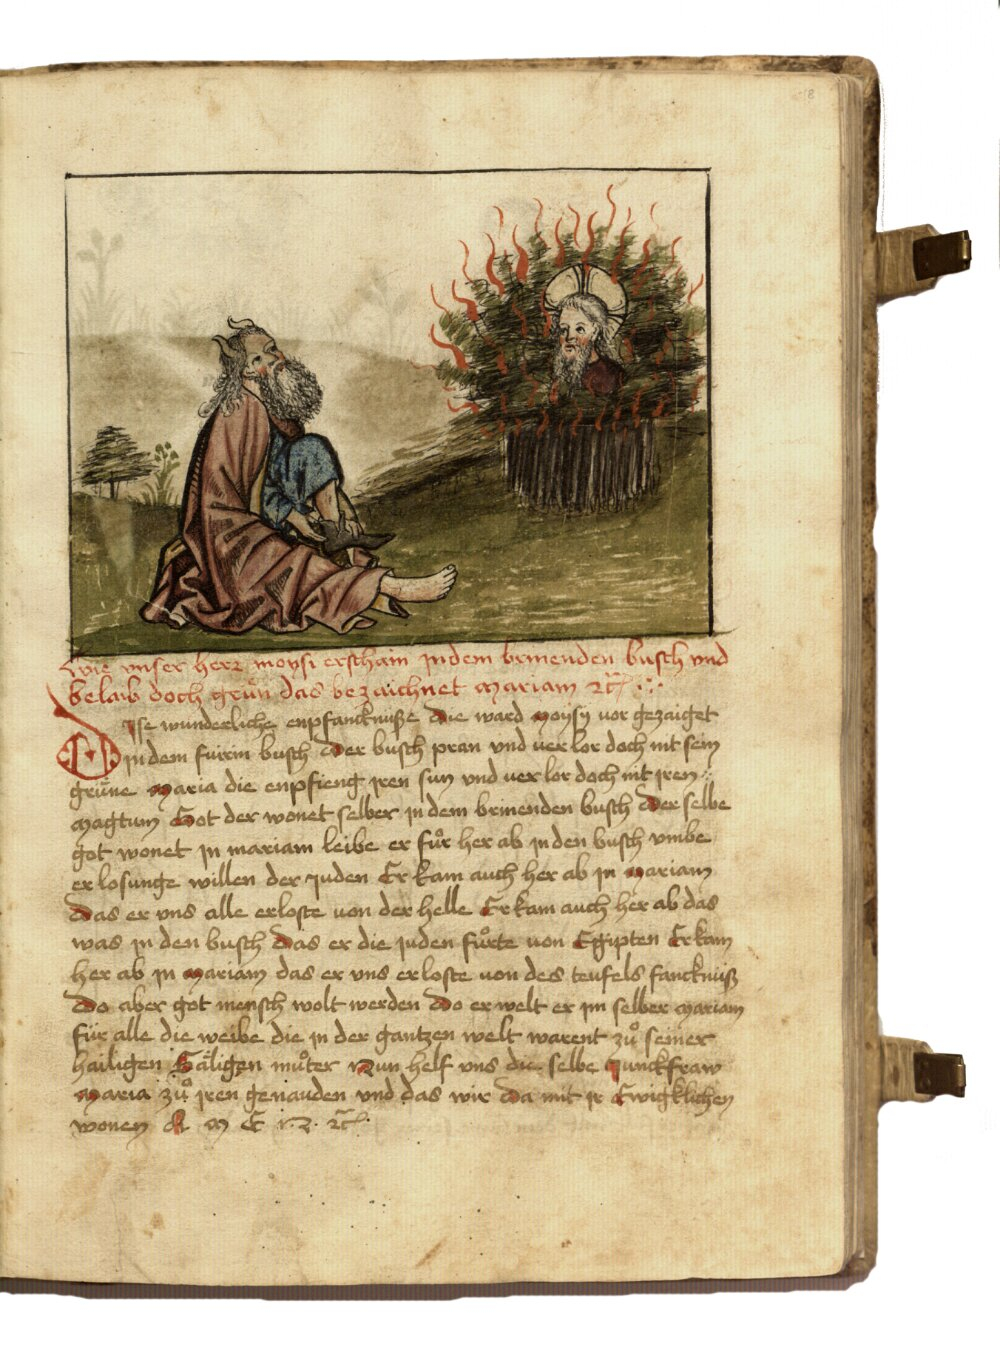 8
Wie vnser herr moysi erschain in dem brinenden busch vnd
belaib doch grün das bezaichnet Mariam ꝛcͭ
Dise wunderliche enpfancknuße Die ward Moysy vor gezaiget
in dem fürin busch Der busch pran vnd verlor doch nit sein
grüne Maria die enpfieng iren sun vnd verlor doch nit iren
magtum Got der wonet selber in dem brinenden busch Der selbe
got wonet in mariam leibe er fůr her ab in den busch vmbe
erlosunge willen der Juden Er kam auch her ab in Mariam
Das er vns alle erloste von der helle Er kam auch her ab das
was in den busch Das er die juden fůrte von Egipten Er kam
her ab in Mariam das er vns erloste von des teufels fancknuß
Do aber got mensch wolt werden Do erwelt er im selber Mariam
für alle die weibe die in der gantzen welt warent zů seiner
hailigen Säligen můter Nun helf vns die selbe Junckfraw
Maria zů iren genauden vnd das wir Da mit ir Ewigklichen
wonen A M E N ꝛcͭ